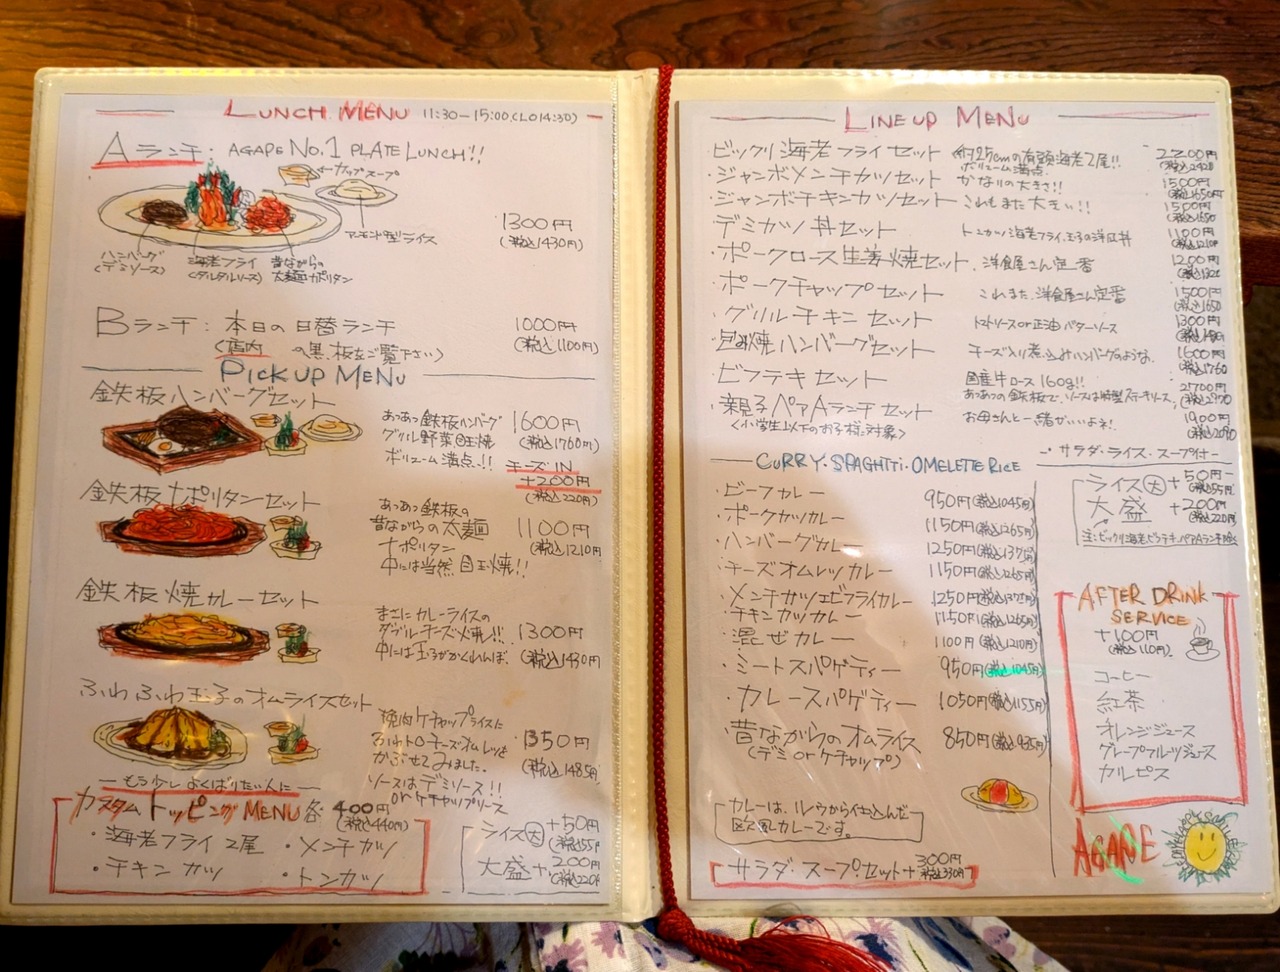 LUNCH MENU 11:30-15:00(L.O14:30)
Aランチ・AGAPE No.1 PLATE LUNCH!!
カップスープ
1300円
(税込1430円)
アーモンド型ライス
ハンバーグ
(デミソース)
海老フライ
(タルタルソース)
昔ながらの
太麺ナポリタン
Bランチ:本日の日替ランチ
(店内の黒板をご覧下さい)
1000円
(税込1100円)
PICK UP MENU
鉄板ハンバーグセット
あつあつ鉄板ハンバーグ
グリル野菜目玉焼
ボリューム満点!!
1600円
(税込1760円)
チーズIN
+200円
(税込220円)
鉄板ナポリタンセット
あつあつ鉄板の
昔ながらの太麺
ナポリタン
中には当然目玉焼!!
1100円
(税込1210円)
鉄板焼カレーセット
まさにカレーライスの
ダブルチーズ焼!!!
中には玉子がかくれんぼ.
1300円
(税込1430円)
ふわふわ玉子のオムライスセット
挽肉ケチャップライスに
ふわトロチーズオムレツを
かぶせてみました.
ソースはデミソース!!
orケチャップソース
1350円
(税込1485円)
もう少しよくばりたい人に
カスタムトッピングMENU各400円
(税込440円)
・海老フライ2尾 ・メンチカツ
・チキンカツ ・トンカツ
ライス大 +50円
(税込55円
大盛+200円
(税込220円
LINE UP MENU
ビックリ海老フライセット 約25cmの有頭海老2尾!! ボリューム満点 2200円
(税込2420
・ジャンボメンチカツセット かなりの大きさ!! 1500円
(税込1650円
・ジャンボチキンカツセット これもまた大きい!! 1500円
(税込1650
・デミカツ丼セット トンカツ海老フライ,玉子の洋風丼 1100円
(税込1210
・ポークロース生姜焼セット. 洋食屋さん定番 1200円
(税込1320
・ポークチャップセット これまた,洋食屋さん定番 1500円
(税込1650
・グリルチキンセット トマトソースor正油バターソース 1300円
・包み焼ハンバーグセット チーズ入り煮込みハンバーグのような. 1600円
(税込1760
・ビフテキセット 国産牛ロース160g!!
あつあつの鉄板で、ソースは特製ステーキソース. 2700円
(税込2970
・親子ペアAランチセット お母さんと一緒がいいよネ! 1900円
(税込2090
<小学生以下のお子様に対象>
サラダ・ライス・スープ付
CURRY・SPAGHTTi・OMELETTE RICE
・ビーフカレー 950円(税込1045円)
・ポークカツカレー 1150円(税込1265円)
・ハンバーグカレー 1250円(税込1375円)
・チーズオムレツカレー 1150円(税込1265円)
・メンチカツエビフライカレー 1250円(税込1375円)
・チキンカツカレー 1150円(税込1265円)
・混ぜカレー 1100円(税込1210円)
・ミートスパゲティー 950円(税込1045円)
・カレースパゲティー 1050円(税込1155円)
・昔ながらのオムライス 850円(税込935円)
(デミorケチャップ)
カレーは、ルウから仕込んだ
欧風カレーです。
サラダ・スープセット+300円
税込330円
ライス大 +50円
(税込55円
大盛 +200円
(税込220円)
AFTER DRINK
SERVICE
+100円
(税込110円)
コーヒー
紅茶
オレンジジュース
グレープフルーツジュース
カルピス
AGAPE